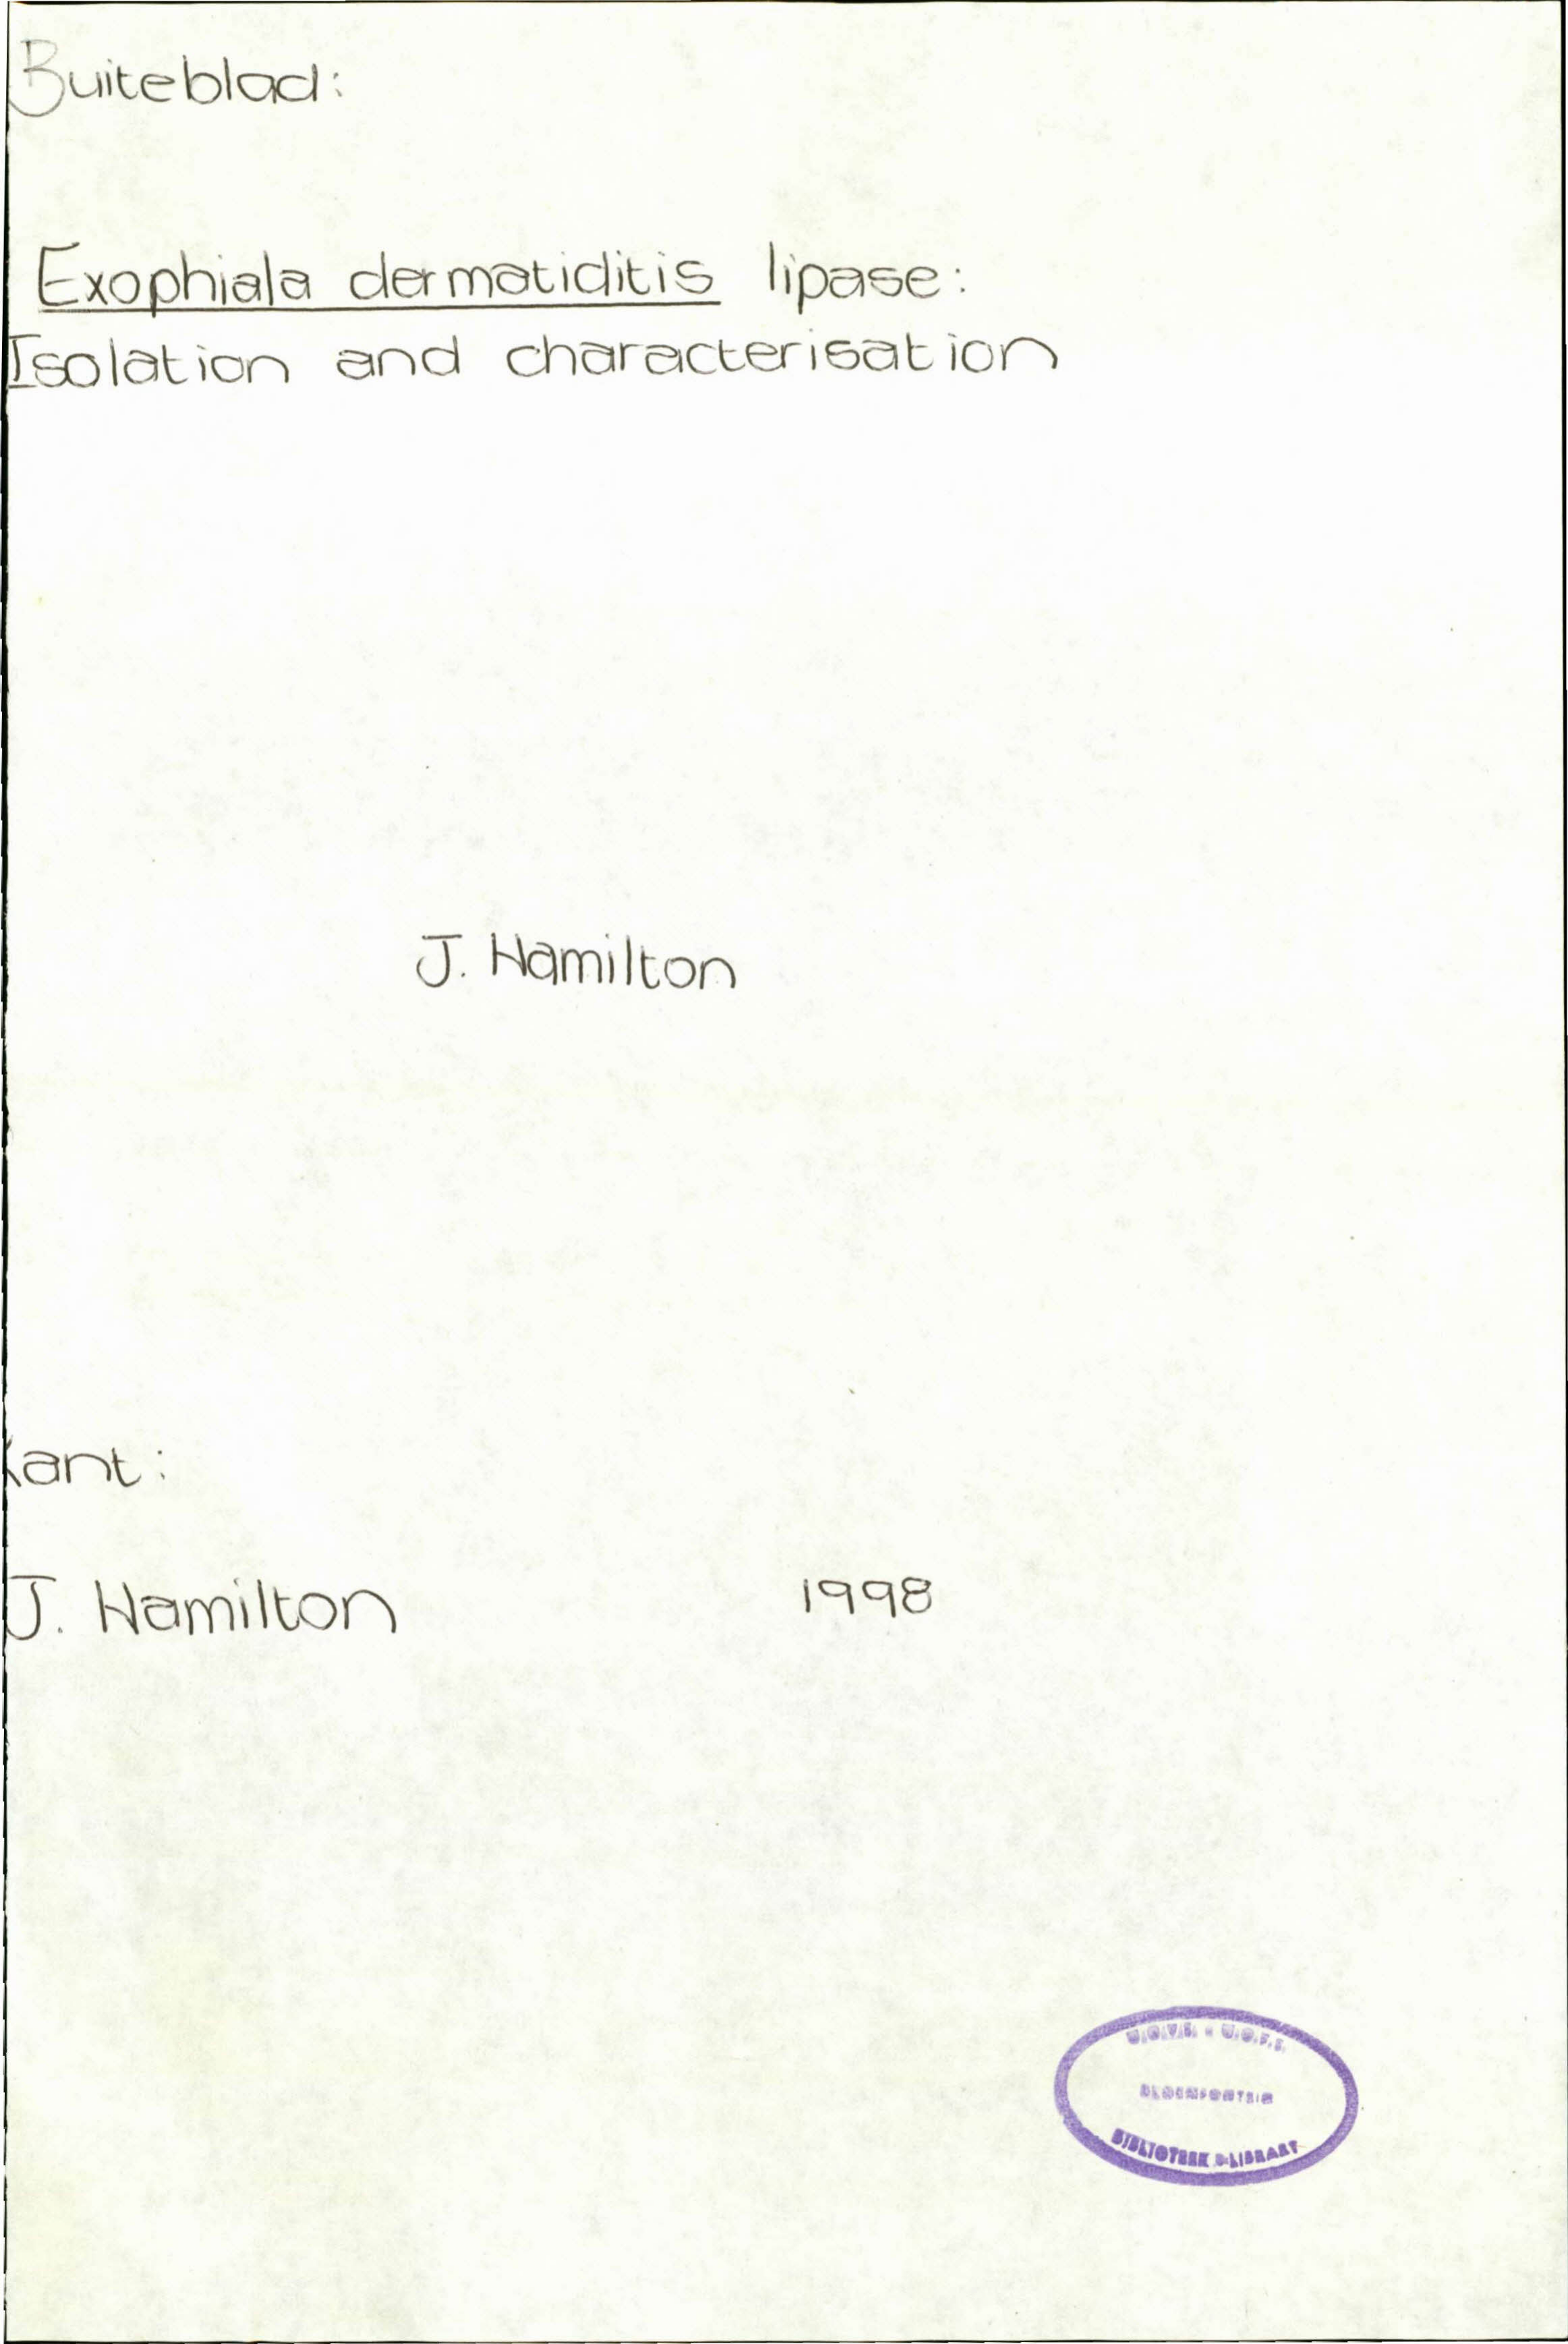 Buiteblad:
Exophiala dermatiditis lipase:
Isolation and characterisation
J. Hamilton
Kant:
J. Hamilton 1998
U.O.V.S. - U.O.F.S.
BLOEMFONTEIN
BIBLIOTEEK - LIBRARY